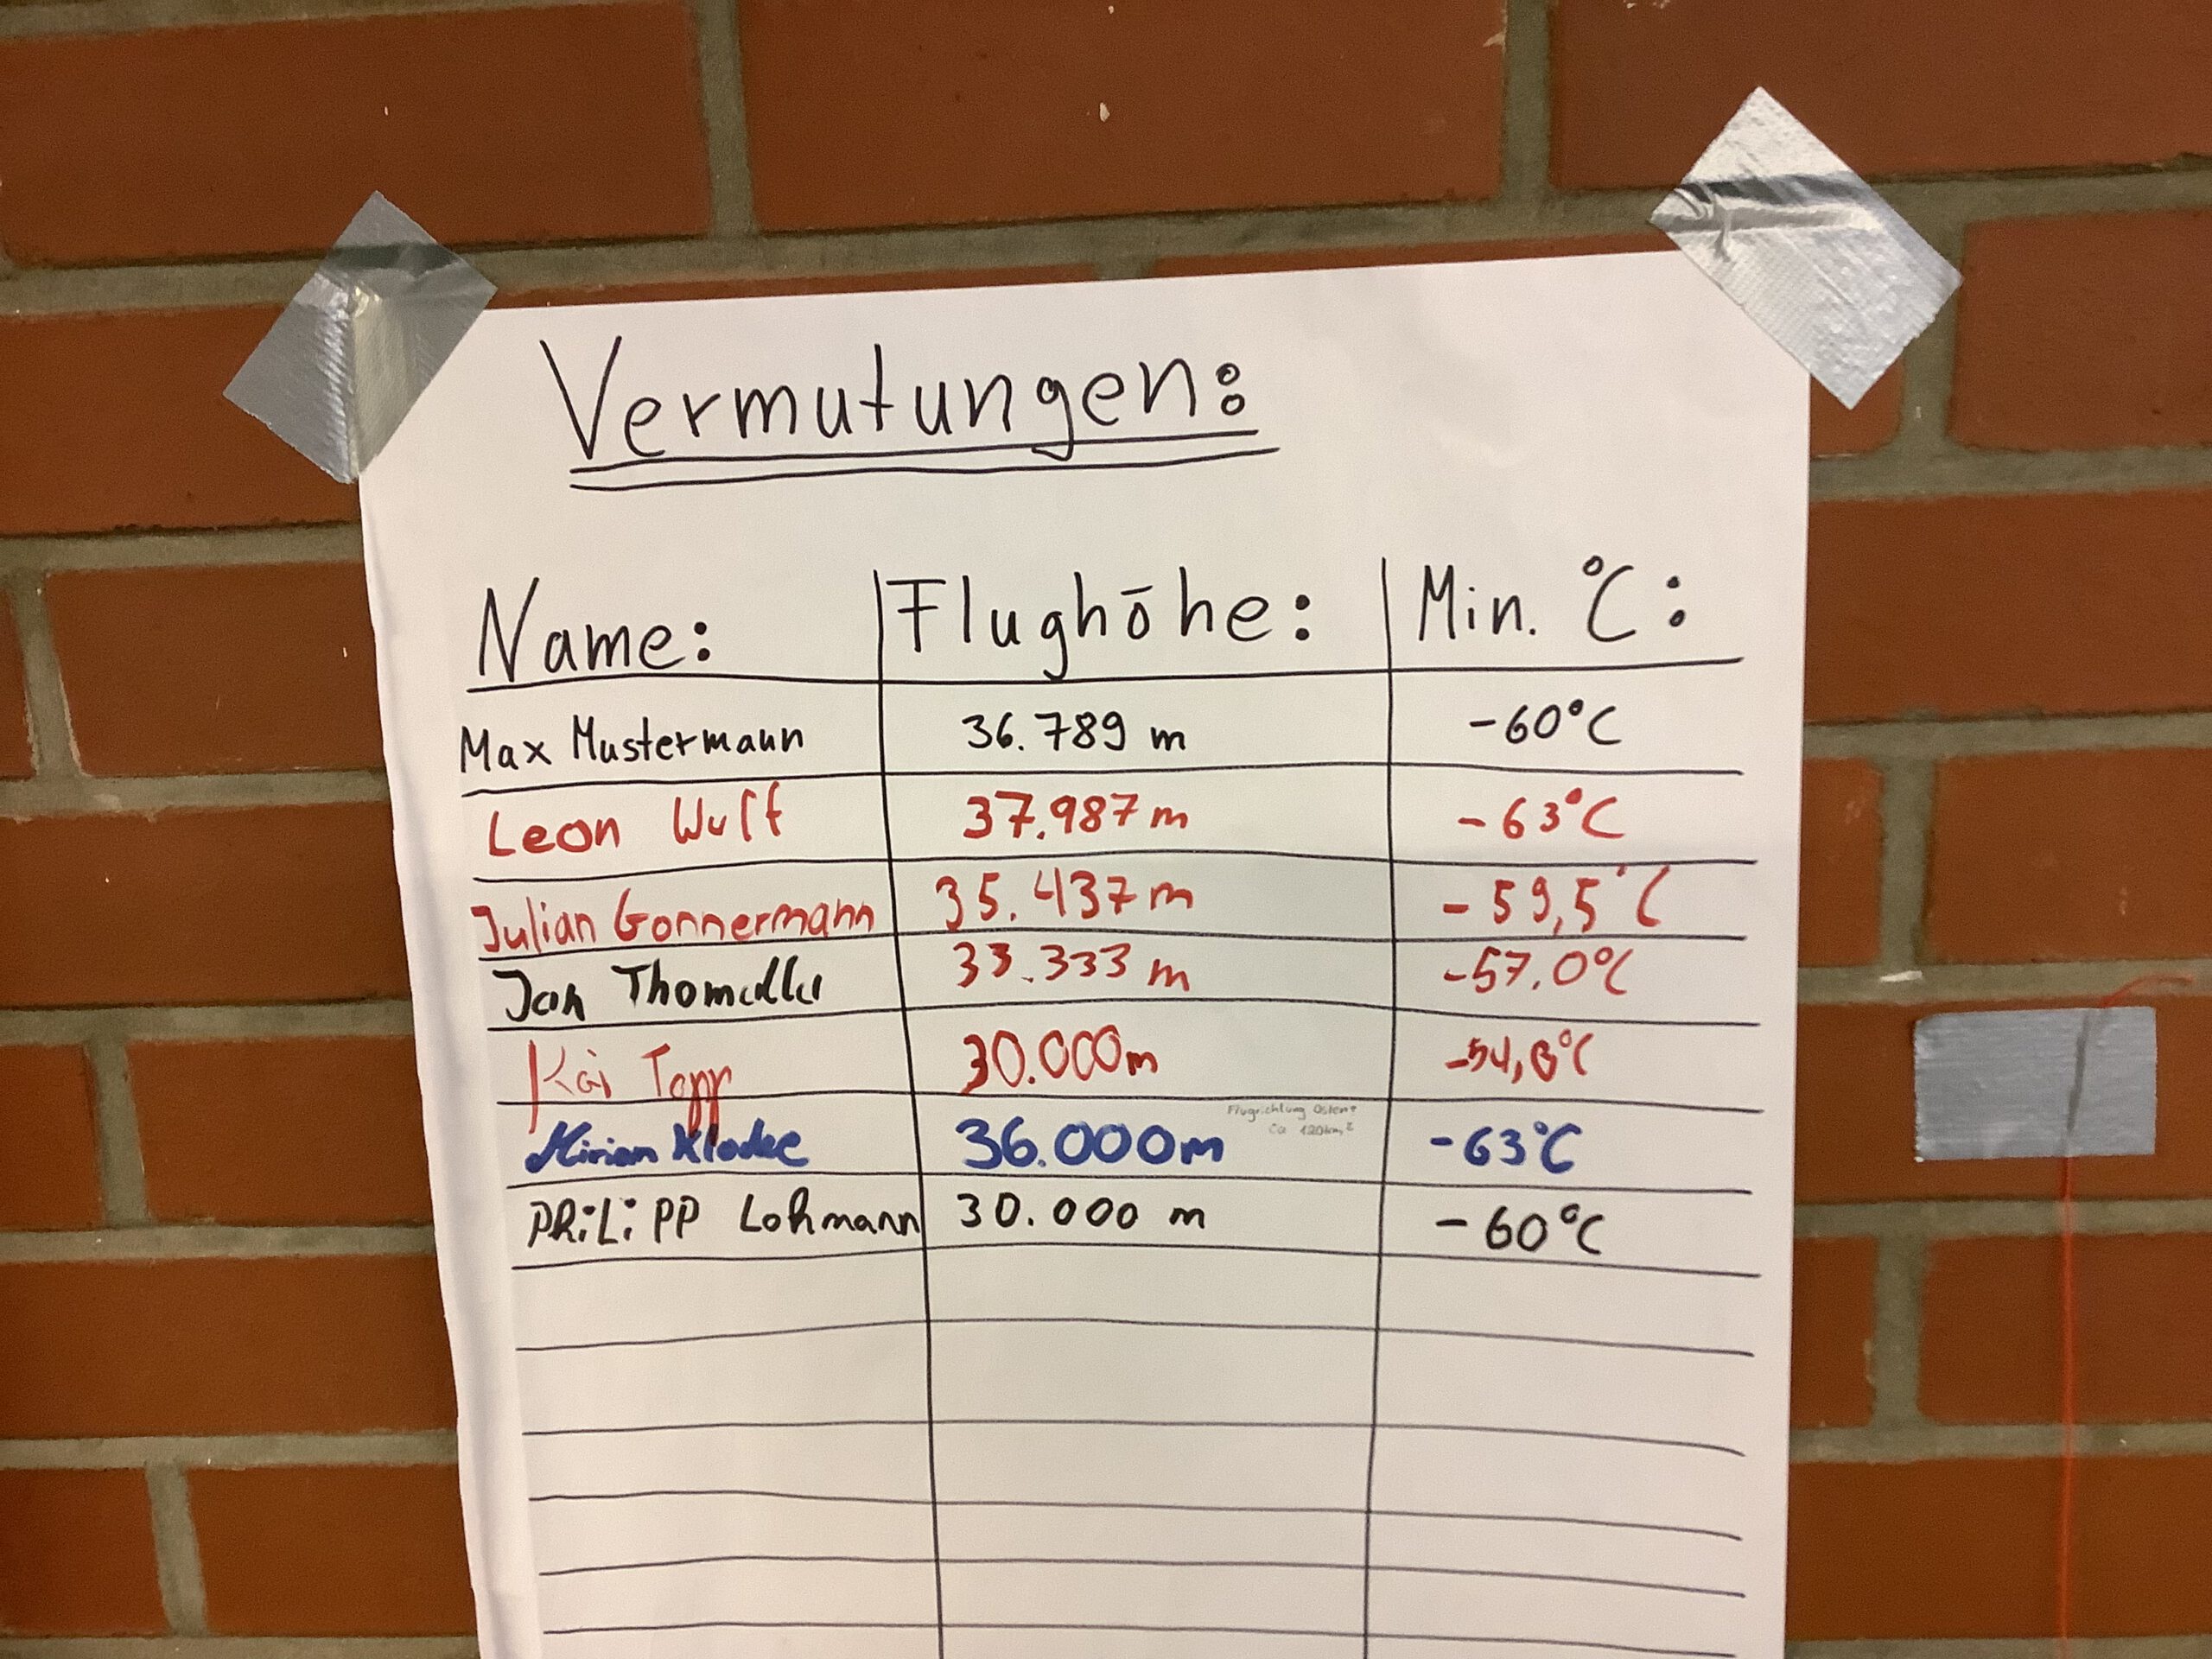 Vermutungen:
Name: Flughöhe: Min. °C:
Max Mustermann 36.789 m -60°C
Leon Wulf 37.987 m -63°C
Julian Gonnermann 35.437 m -59,5°C
Jan Thomalla 33.333 m -57.0°C
Kai Topp 30.000m -54,8°C
Flugrichtung Osten?
Ca 120km?
36.000m -63°C
PhiLiPP Lohmann 30.000 m -60°C